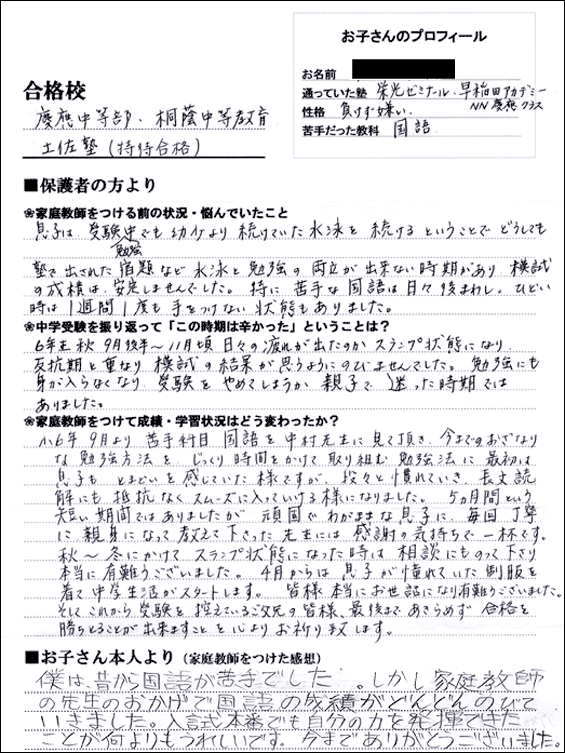 お子さんのプロフィール
お名前
通っていた塾 栄光ゼミナール・早稲田アカデミー
NN慶應クラス
性格 負けず嫌い
苦手だった教科 国語
合格校
慶應中等部、桐蔭中等教育
土佐塾(特待合格)
■保護者の方より
❀家庭教師をつける前の状況・悩んでいたこと
息子は、受験勉強中でも幼少より続けていた水泳を続けるということでどうしても
塾で出された宿題など水泳と勉強の両立が出来ない時期があり模試
の成績は、安定しませんでした。特に苦手な国語は日々後まわし。ひどい
時は1週間1度も手をつけない状態もありました。
❀中学受験を振り返って「この時期は辛かった」ということは?
6年生秋9月後半~11月頃日々の疲れが出たのかスランプ状態になり、
反抗期と重なり模試の結果が思うようにのびませんでした。勉強にも
身が入らなくなり、受験をやめてしまうか親子で、迷った時期では
ありました。
❀家庭教師をつけて成績・学習状況はどう変わったか?
小6年9月より苦手科目国語を中村先生に見て頂き、今までのおざなり
な勉強方法をじっくり時間をかけて取り組む勉強法に最初は
息子もとまどいを感じていた様ですが、段々と慣れていき、長文読
解にも抵抗なくスムーズに入っていける様になりました。5ヵ月間という
短い期間ではありましたが頑固でわがままな息子に、毎回丁寧
に親身になって教えて下さった先生には感謝の気持ちで一杯です。
秋~冬にかけてスランプ状態になった時は相談にものって下り
本当に有難うございました。4月からは息子が憧れていた制服を
着て中学生活がスタートします。皆様本当にお世話になり有難うございました。
そしてこれから受験を控えているご父兄の皆様、最後まであきらめず合格を
勝ちとることが出来ますことを心よりお祈り致します。
■お子さん本人より(家庭教師をつけた感想)
僕は、昔から国語が苦手でした。しかし家庭教師
の先生のおかげで国語の成績がどんどんのびて
いきました。入試本番でも自分の力を発揮できた
ことが何よりもうれしいです。今までありがとうございました。